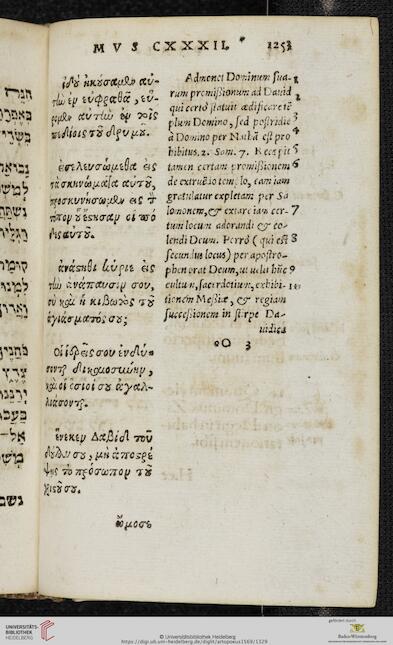 MVS CXXXII.
1253
ἰδοὺ ἠκούσαμεν αὐ-
τὴν ἐν εὐφραθᾷ, εὕ-
ρομεν αὐτὴν ἐν τοῖς
πεδίοις τοῦ δρυμοῦ.
εἰσελευσώμεθα εἰς
τὰ σκηνώματα αὐτοῦ,
προσκυνήσωμεν εἰς τὸν
τόπον οὗ ἔστησαν οἱ πό
δες αὐτοῦ.
ἀνάστηθι κύριε εἰς
τὴν ἀνάπαυσίν σου,
σὺ καὶ ἡ κιβωτὸς τοῦ
ἁγιάσματός σου;
Οἱ ἱερεῖς σου ἐνδύ-
σονται δικαιοσύνην,
καὶ οἱ ὅσιοί σου ἀγαλ-
λιάσονται.
ἕνεκεν Δαβὶδ τοῦ
δούλου σου, μὴ ἀποστρέ
ψῃς τὸ πρόσωπον τοῦ
χριστοῦ σου.
ὤμοσε
Admonet Dominum sua-
rum promissionum ad Dauid
qui certò statuit ædificare tē
plum Domino, sed postridie
à Domino per Nathā est pro
hibitus. 2. Sam. 7. Recepit
tamen certam promissionem
de extruēdo templo, eam iam
gratulatur expletam per Sa
lomonem, & extare iam cer-
tum locum adorandi & co-
lendi Deum. Porrò (qui est
secundus locus) per apostro-
phen orat Deum, ut uelit hūc
cultum, sacerdotium, exhibi-
tionem Messiæ, & regiam
successionem in stirpe Da-
uidica
1
2
3
4
5
6
7
8
9
10
UNIVERSITÄTS-
BIBLIOTHEK
HEIDELBERG
© Universitätsbibliothek Heidelberg
https://digi.ub.uni-heidelberg.de/diglit/artopoeus1569/1329
gefördert durch
Baden-Württemberg